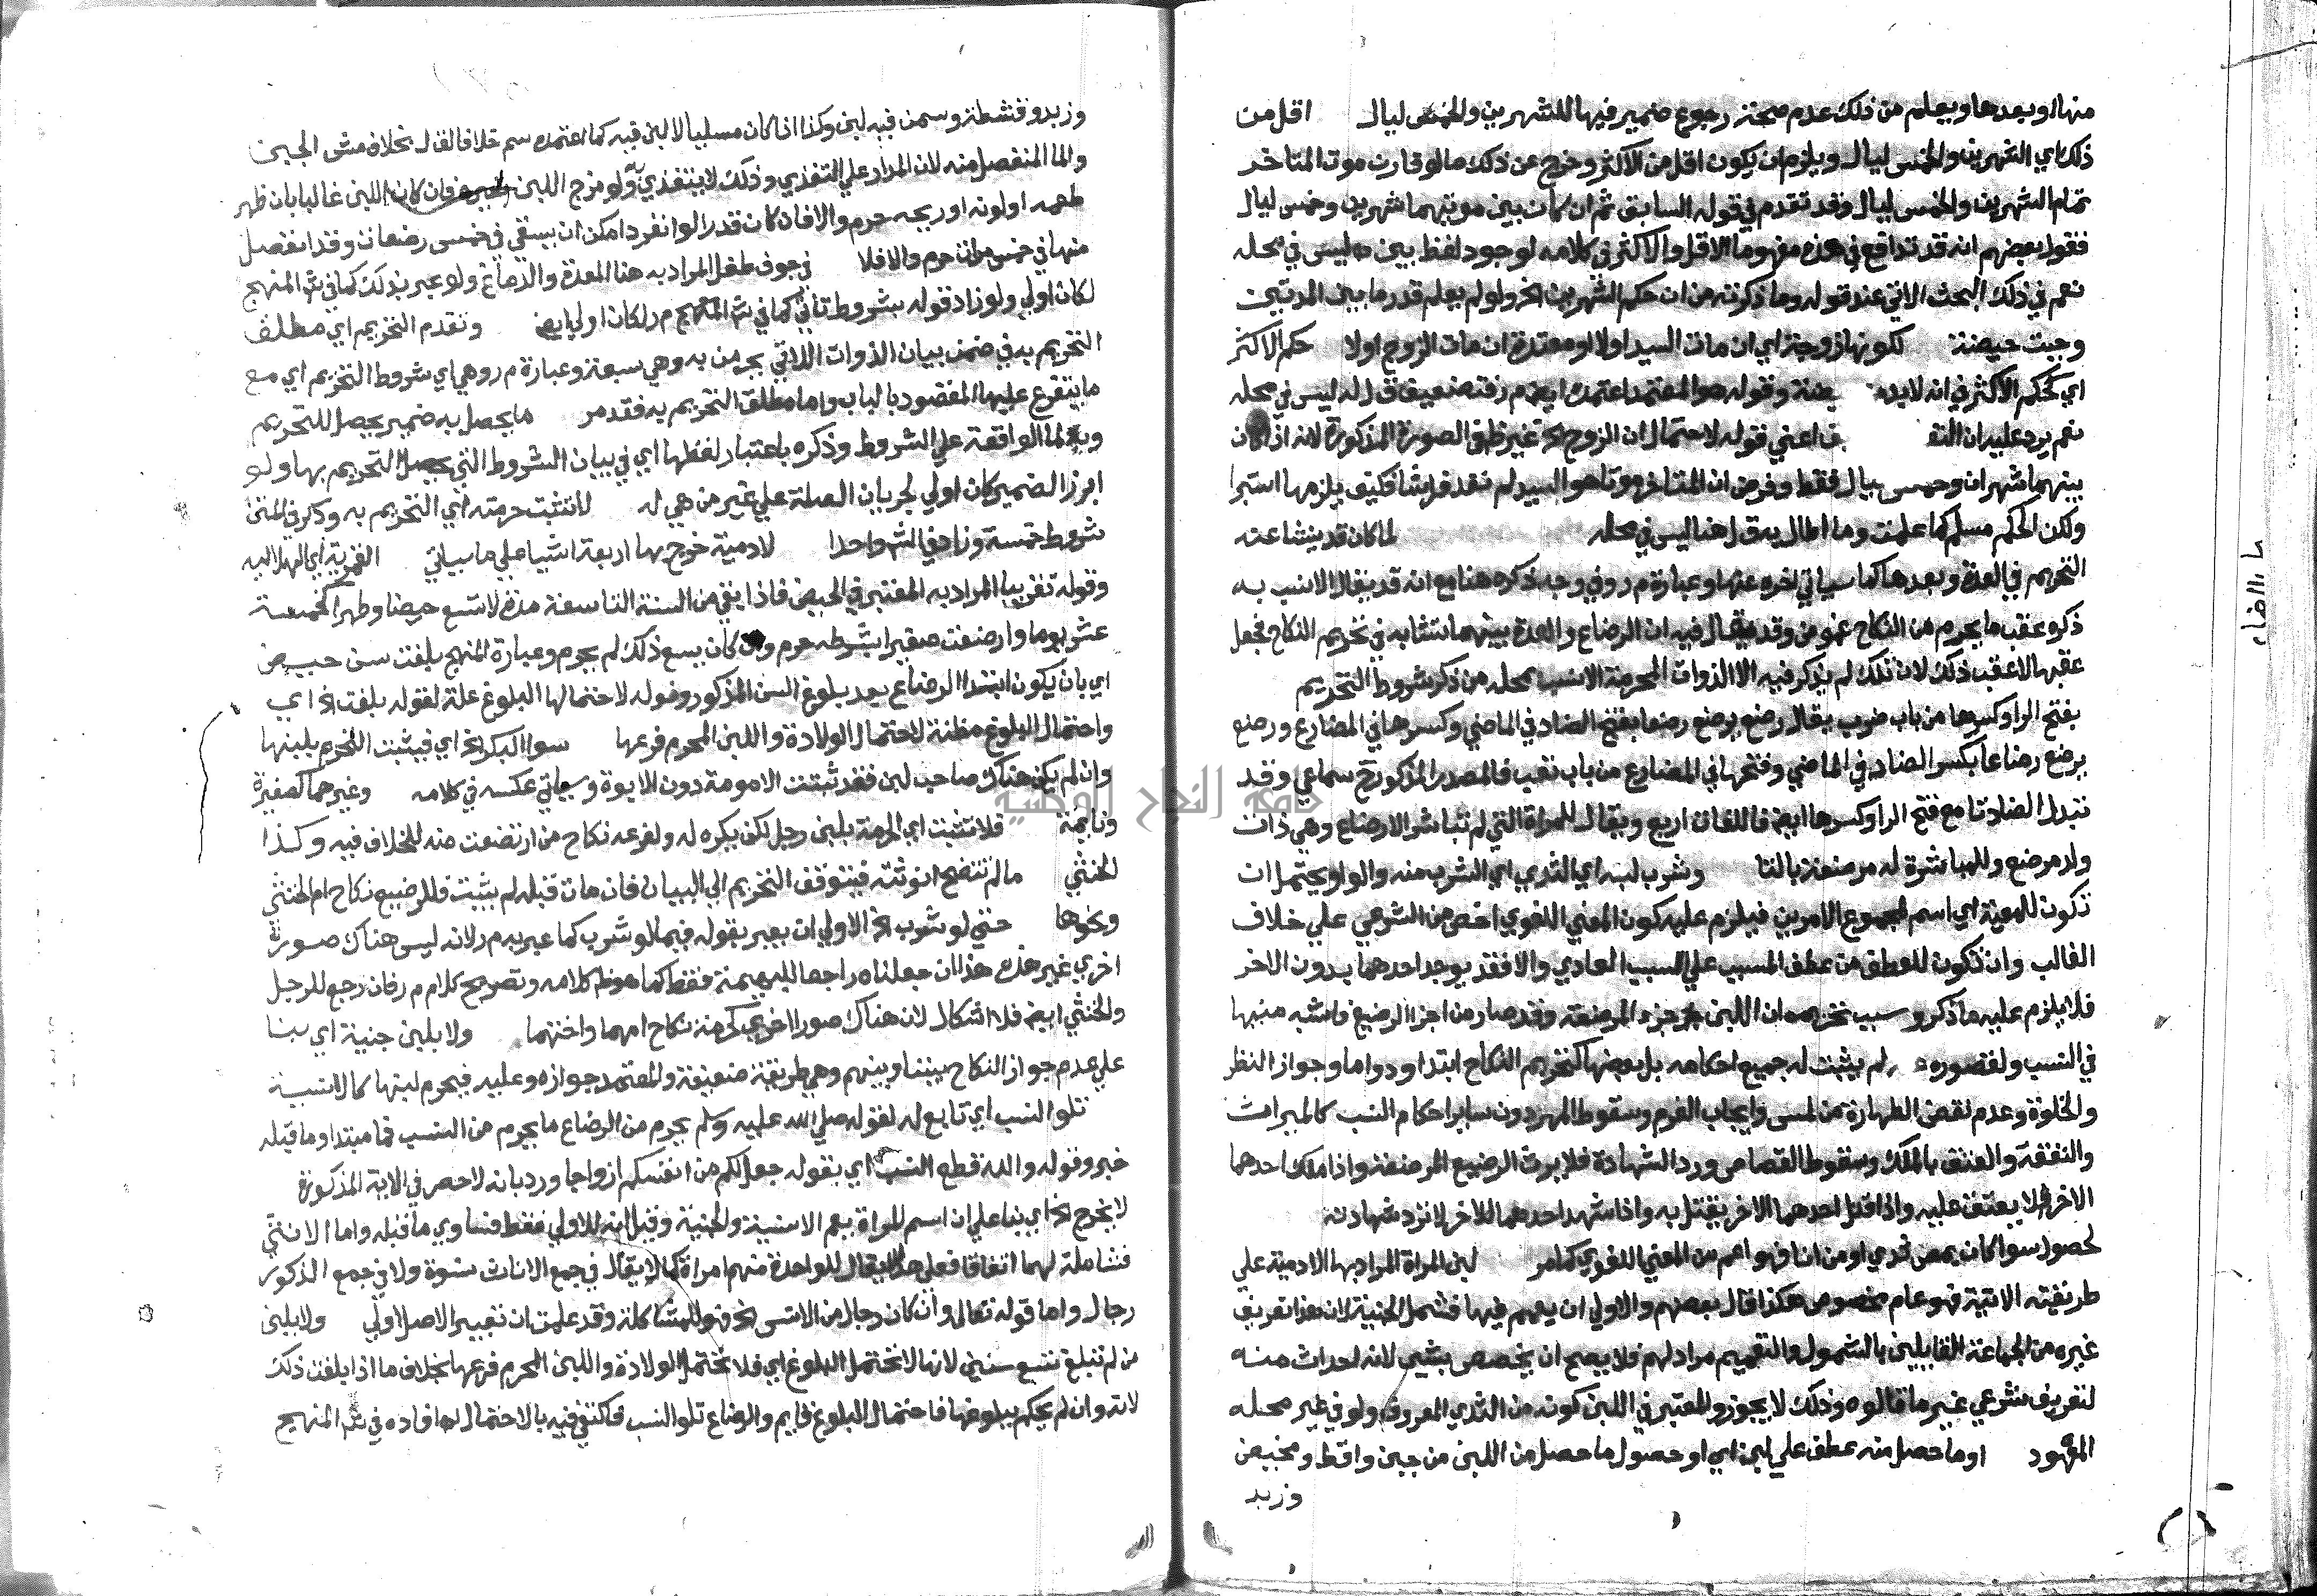 منها وبعدها ويعلم من ذلك عدم صحة رجوع ضمير فيها للشهرين والخمس ليال اقل من
ذلك اي الشهرين والخمس ليال ويلزم ان يكون اقل من الاكثر وخرج عن ذلك ما لو قارن موت المتاخر
تمام الشهرين والخمس ليال وقد تقدم في قوله السابق ثم ان كان بين موتيهما شهرين وخمس ليال
فقول بعضهم انه قد تدافع في هذه مفهوما الاقل والاكثر في كلامه لوجود لفظ بين ليس في محله
نعم في ذلك البحث الاتي عند قوله وما ذكرته من ان حكم الشهرين الخ ولو لم يعلم قدر ما بين المدتين
وجبت حيضة لكونها زوجة اي ان مات السيد اولا او معتدة ان مات الزوج اولا حكم الاكثر
اي كحكم الاكثر في انه لا بد وقوله هو المعتمد اعتمده ايضا م ر فتضعيف ق ل له ليس في محله
نعم يرد عليه ان اعني قوله لاحتمال ان الزوج الخ غير ظ في الصورة المذكورة لانه اذا كان
بينهما شهران وخمس ليال فقط وفرض ان المتاخر موتا هو السيد لم تعد فراشا فكيف يلزمها استبرا
ولكن الحكم مسلم كما علمت وما اطال به ق ل هنا ليس في محله لما كان قد ينشا عنه
التحريم في العدة وبعدها كما سياتي اخره عنها وعبارة م ر وفي وجه ذكره هنا مع انه قد يقال الانسب به
ذكره عقب ما يحرم من النكاح غموض وقد يقال فيه ان الرضاع والعدة بينهما تشابه في تحريم النكاح فجعل
عقبها لا عقب ذلك لان ذلك لم يذكر فيه الا الذوات المحرمة الانسب بمحله من ذكر شروط التحريم
بفتح الرا وكسرها من باب ضرب يقال رضع يرضع رضعا بفتح الضاد في الماضي وكسرها في المضارع ورضع
يرضع رضاعا بكسر الضاد في الماضي وفتحها في المضارع من باب تعب فالمصدر المذكور سماعي وقد
تبدل الضاد تا مع فتح الرا وكسرها ايضا فاللغات اربع ويقال للمراة التي لم تباشر الارضاع وهي ذات
ولد مرضع وللمباشرة له مرضعة بالتا وشرب لبنه اي الثدي اي الشرب منه والواو يحتمل ان
تكون للمعية اي اسم لمجموع الامرين فيلزم عليه كون المعنى اللغوي اخص من الشرعي علي خلاف
الغالب وان تكون للعطف من عطف المسبب علي السبب العادي والا فقد يوجد احدهما بدون الاخر
فلا يلزم عليه ما ذكر وسبب تحريمه ان اللبن جزء المرضعة وقد صار من اجزا الرضيع فاشبه منيها
في النسب ولقصوره لم يثبت له جميع احكامه بل بعضها كتحريم النكاح ابتدا ودواما وجواز النظر
والخلوة وعدم نقض الطهارة من لمس وايجاب الغرم وسقوط المهر دون ساير احكام النسب كالميراث
والنفقة والعتق بالملك وسقوط القصاص ورد الشهادة فلا يرث الرضيع المرضعة واذا ملك احدهما
الاخر لا يعتق عليه واذا قتل احدهما الاخر يقتل به واذا شهد احدهما للاخر لا ترد شهادته
لحصول سوا كان بمص ثدي او من انا فهو اعم من المعني اللغوي كما مر لبن المراة المراد بها الادمية علي
طريقته الاتية فهو عام مخصوص هكذا قال بعضهم والاولي ان يعمم فيها فتشمل الجنية لان هذا تعريف
غيره من الجماعة القايلين بالشمول والتعميم مراد لهم فلا يصح ان يخصص بشي لانه احداث منه
لتعريف شرعي غير ما قالوه وذلك لا يجوز والمعتبر في اللبن كونه من الثدي المعروف ولو في غير محله
المعهود او ما حصل منه عطف علي لبن اي او حصول ما حصل من اللبن من جبن واقط ومخيض
وزبد
وزبد وقشطة وسمن فيه لبن وكذا اذا كان مسليا لا لبن فيه كما اعتمده سم خلافا لق ل بخلاف مش الجبن
والما المنفصل منه لان المدار علي التغذي وذلك لا يتغذي به ولو مزج اللبن فان كان اللبن غالبا بان ظهر
طعمه او لونه او ريحه حرم والا فان كان قدرا لو انفرد امكن ان يسقي في خمس رضعات وقد انفصل
منها في خمس مرات حرم والا فلا في جوف طفل المراد به هنا المعدة والدماغ ولو عبر بذلك كما في شر المنهج
لكان اولي ولو زاد قوله بشروط تاتي كما في شر المنهج م ر لكان اولي ايضا وتقدم التحريم اي مطلق
التحريم به في ضمن بيان الذوات اللاتي يحرمن به وهي سبعة وعبارة م ر وهي اي شروط التحريم اي مع
ما يتفرع عليها المقصود بالباب واما مطلق التحريم به فقد مر ما يحصل به ضمير يحصل للتحريم
وبه لما الواقعة علي الشروط وذكره باعتبار لفظها اي في بيان الشروط التي يحصل التحريم بها ولو
ابرز الضمير كان اولي لجريان الصلة علي غير من هي له لا تثبت حرمته اي التحريم به وذكر في المتن
شروط خمسة وزاد في الشر واحدا لادمية خرج بها اربعة اشيا علي ما سياتي القمرية اي الهلالية
وقوله تقريبا المراد به المعتبر في الحيض فاذا بقي من السنة التاسعة مدة لا تسع حيضا وطهرا كخمسة
عشر يوما وارضعت صغيرا بشرطه حرم وان كان يسع ذلك لم يحرم وعبارة المنهج بلغت سن حيض
اي بان يكون ابتدا الرضاع بعد بلوغ السن المذكور وقوله لاحتمالها البلوغ علة لقوله بلغت الخ اي
واحتمال البلوغ مظنة لاحتمال الولادة واللبن المحرم فرعها سوا البكر الخ اي فيثبت التحريم بلبنها
وان لم يكن هناك صاحب لبن فقد ثبتت الامومة دون الابوة وسياتي عكسه في كلامه وغيرهما كمفيزة
ونايمة فلا تثبت اي الحرمة بلبن رجل لكن يكره له ولفرعه نكاح من ارتضعت منه للخلاف فيه وكذا
الخنثي ما لم تتضح انوثته فيتوقف التحريم الي البيان فان مات قبله لم يثبت فللرضيع نكاح ام الخنثي
ونحوها حتي لو شرب الخ الاولي ان يعبر بقوله فيما لو شرب كما عبر به م ر لانه ليس هناك صورة
اخري غير هذه هذا ان جعلناه راجعا للبهيمة فقط كما هو ظ كلامه وتصريح كلام م ر فان رجع للرجل
والخنثي ايضا فلا اشكال لان هناك صورا اخري كحرمة نكاح امهما واختهما ولا بلبن جنية اي بنا
علي عدم جواز النكاح بيننا وبينهم وهي طريقة ضعيفة والمعتمد جوازه وعليه فيحرم لبنها كالانسية
تلو النسب اي تابع له لقوله صلي الله عليه وسلم يحرم من الرضاع ما يحرم من النسب فما مبتدا وما قبله
خبر وقوله والله قطع النسب اي بقوله جعل لكم من انفسكم ازواجا ورد بانه لا حصر في الاية المذكورة
لا يخرج الخ اي بنا علي ان اسم المراة يعم الانسية والجنية وقيل انه للاولي فقط فتساوي ما قبله واما الانثي
فشاملة لهما اتفاقا فعلي هذا لا يقال للواحدة منهم امراة كما لا يقال في جمع الاناث نسوة ولا في جمع الذكور
رجال واما قوله تعالي وان كان رجال من الانس الخ فهو للمشاكلة وقد علمت ان تعبير الاصل اولي ولا بلبن
من لم تبلغ تسع سنين لانها لا تحتمل البلوغ اي فلا تحتمل الولادة واللبن المحرم فرعها بخلاف ما اذا بلغت ذلك
لانه وان لم يحكم ببلوغها فاحتمال البلوغ قايم والرضاع تلو النسب فاكتفي فيه بالاحتمال افاده في شر المنهج
جامعة النجاح الوطنية